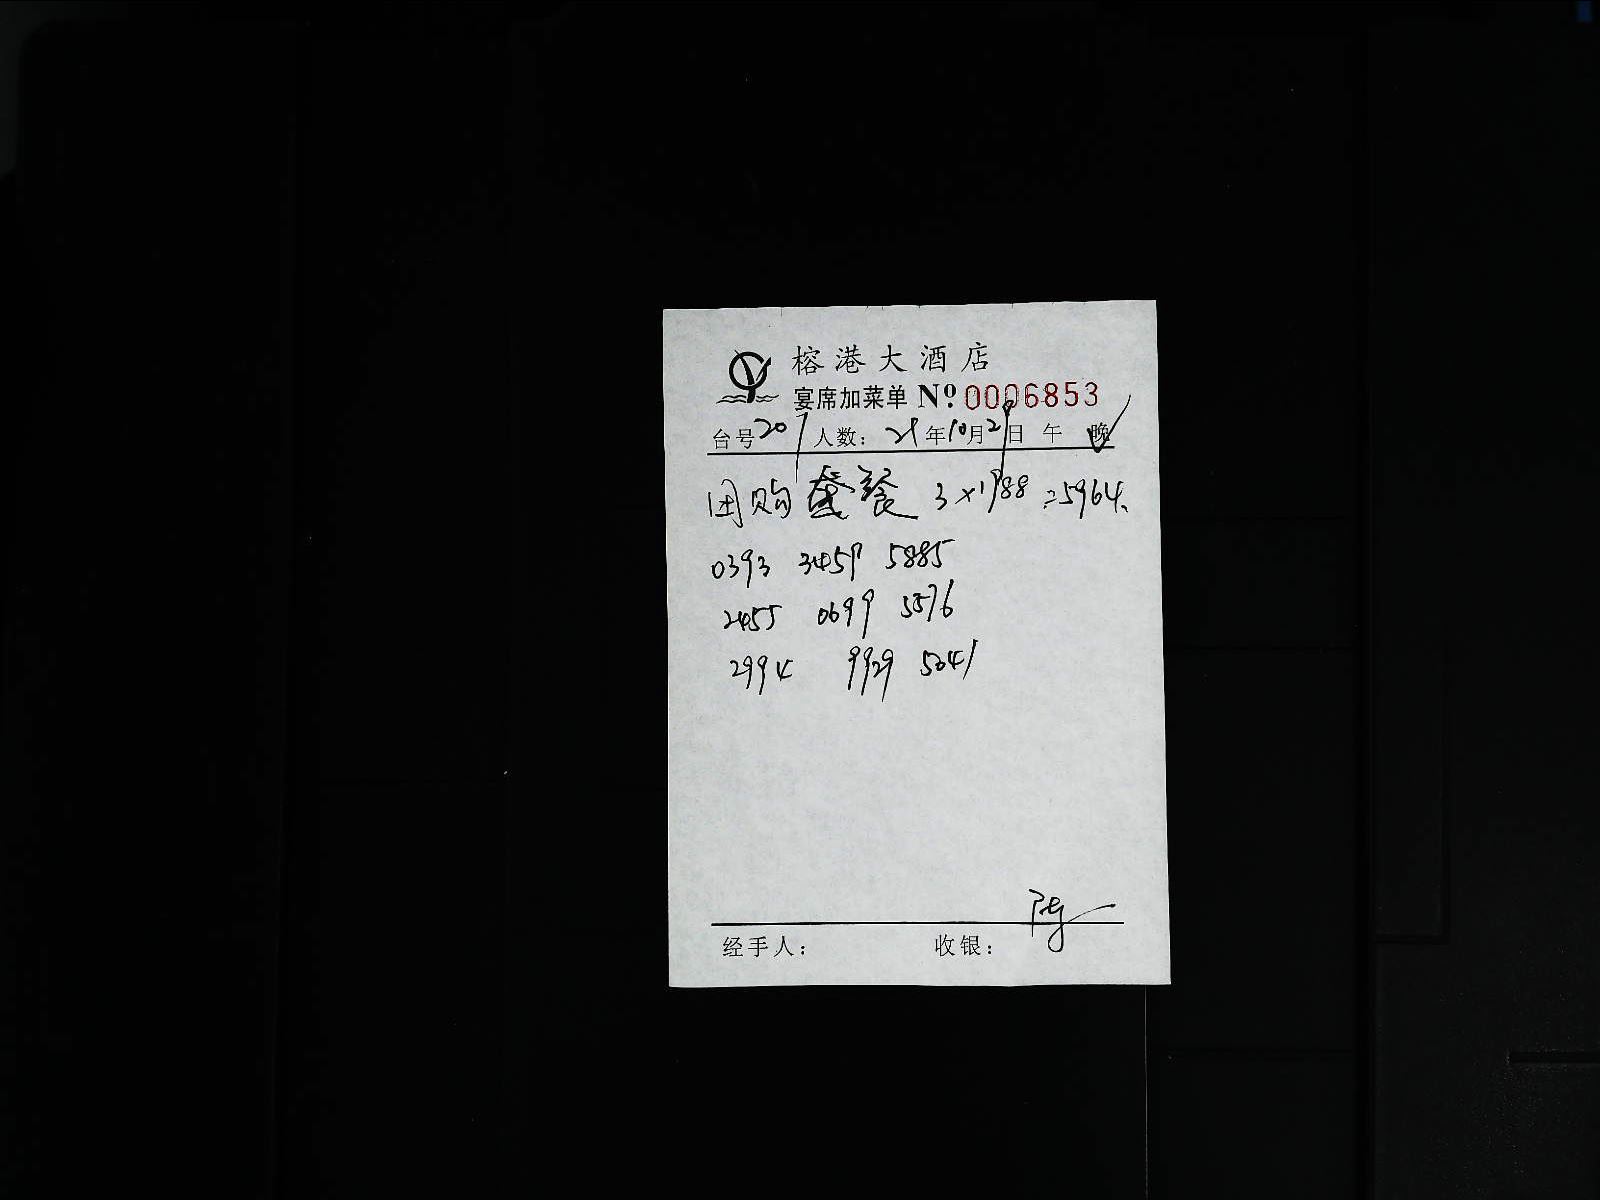 榕港大酒店
宴席加菜单 Nº 0006853
台号 207 人数: 21年10月29日 午 晚
团购套餐 3×1988=5964.
0393 3459 5885
2455 0699 5576
2994 9929 5041
经手人: 收银: